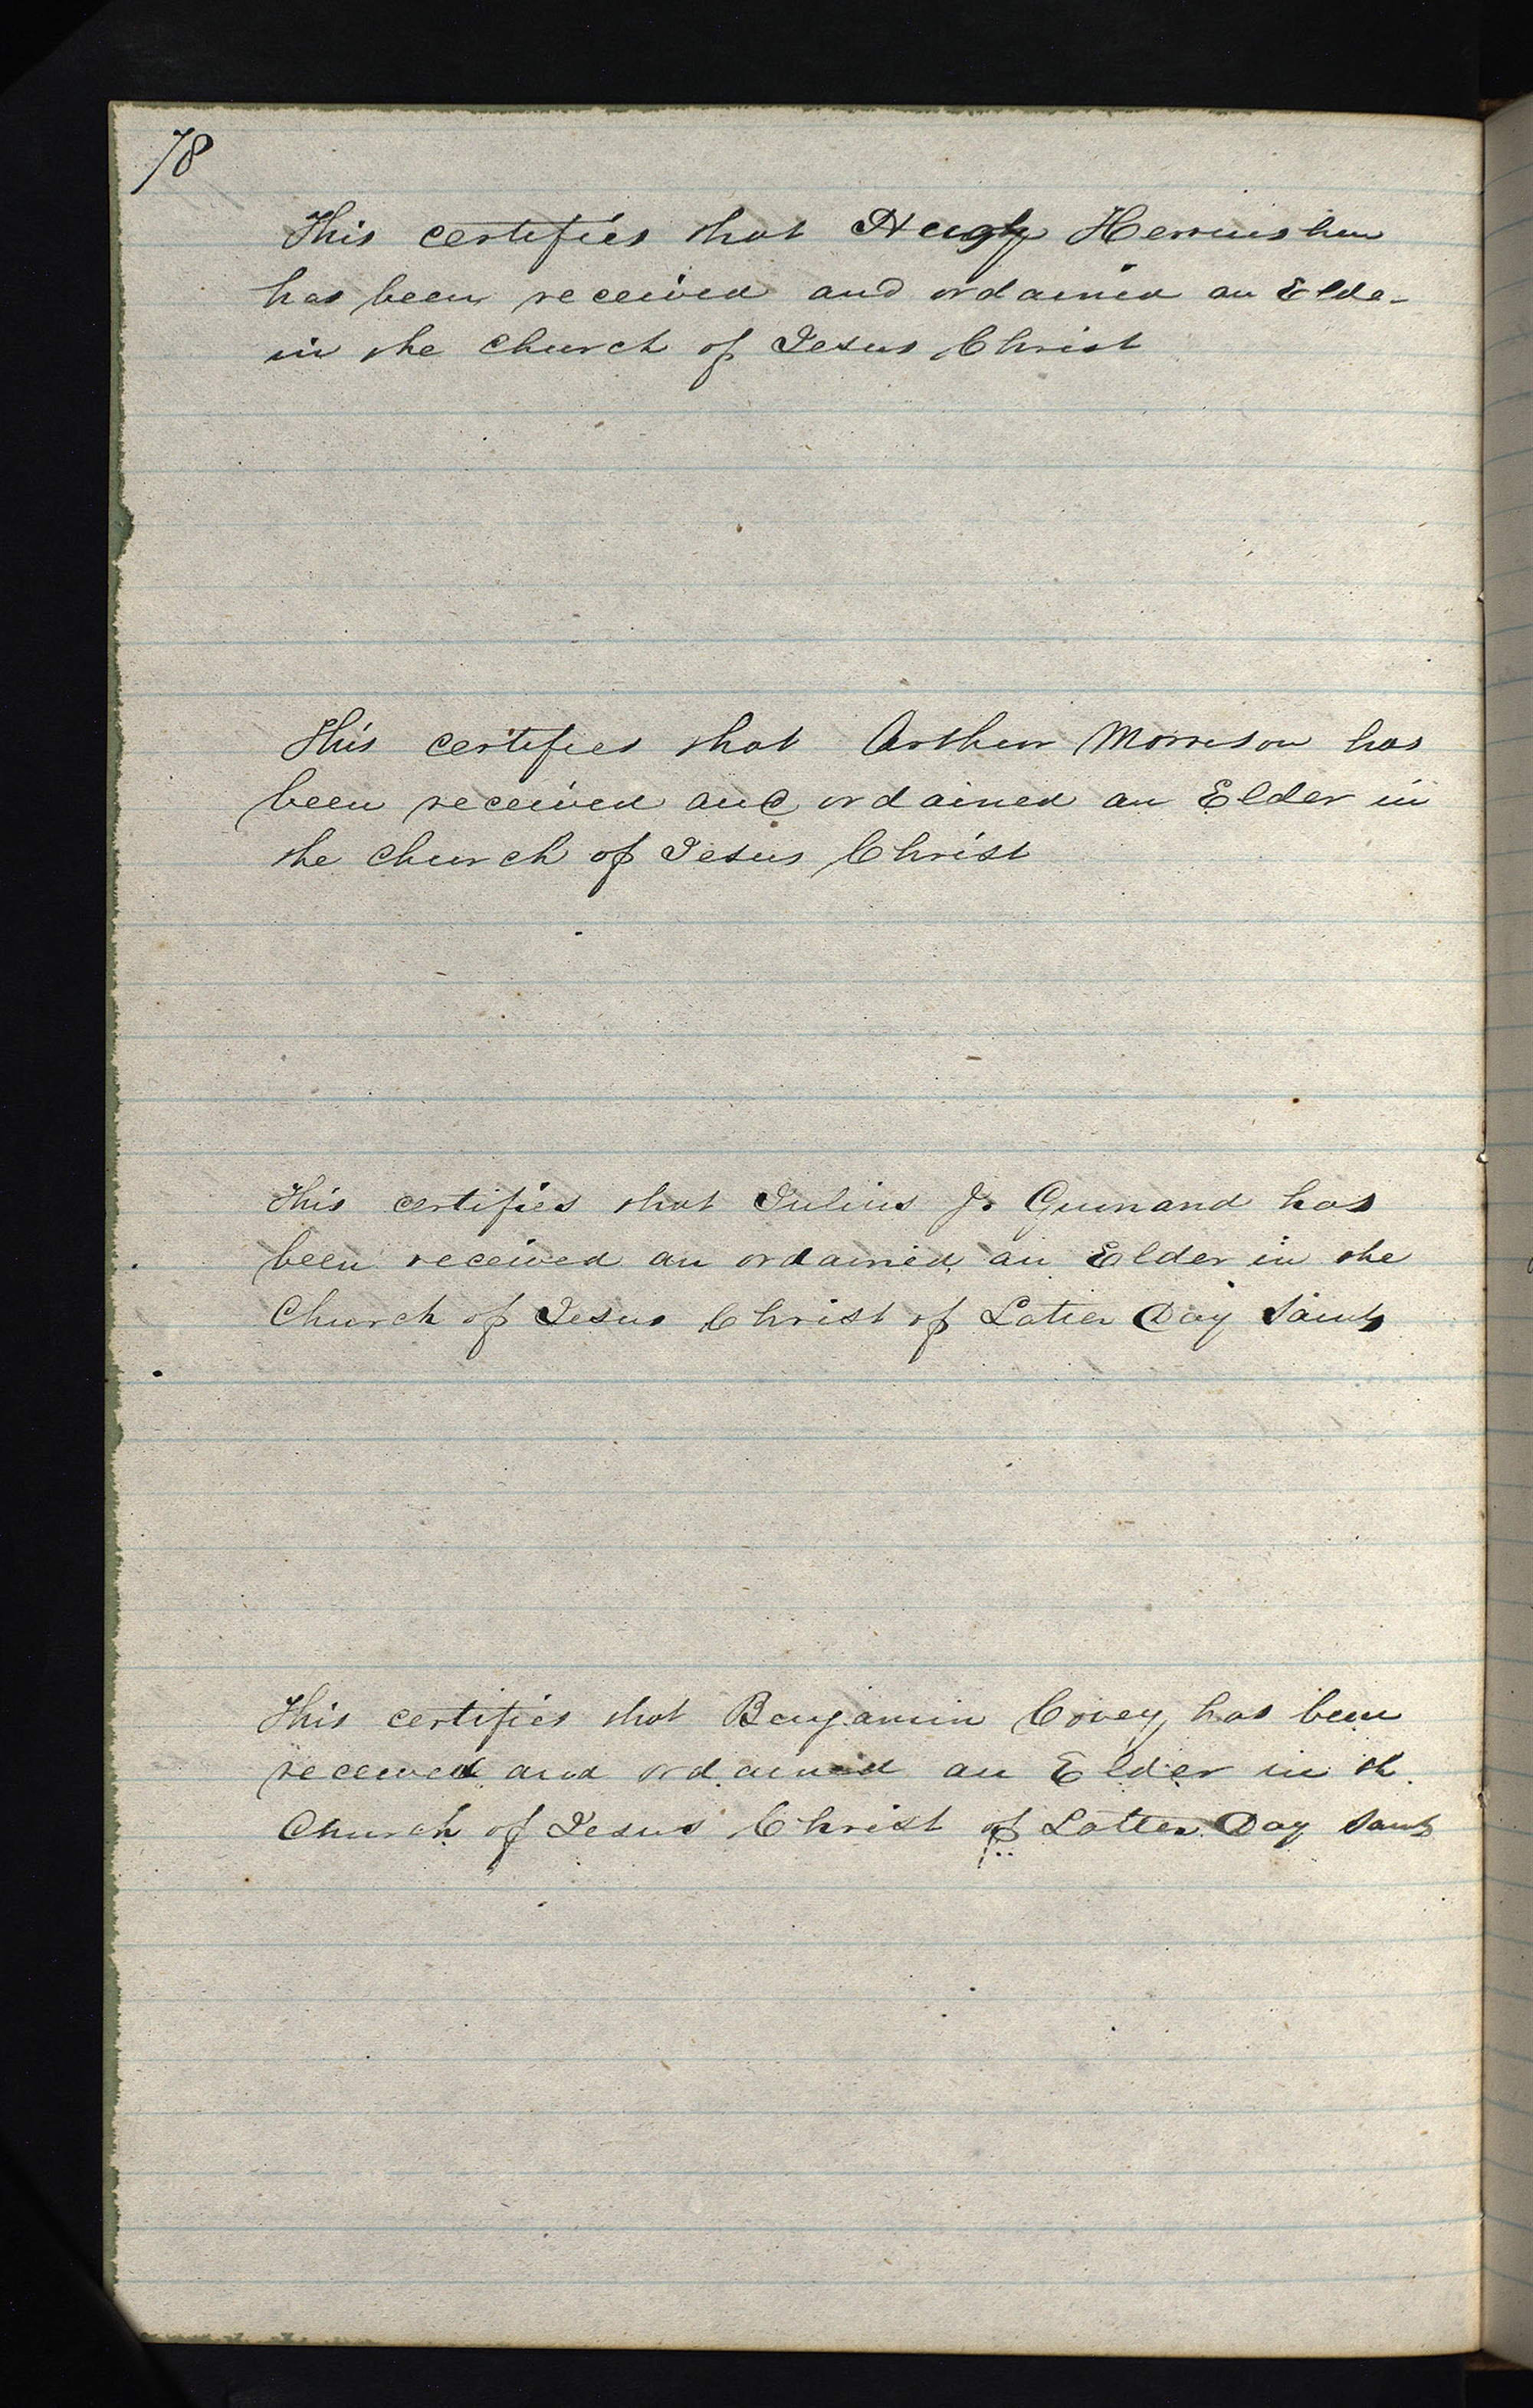 78
This certifies that Hugh Herrinshaw
has been received and ordained an Elde-
in the Church of Jesus Christ
This certifies that Arthur Morrison has
been received and ordained an Elder in
the Church of Jesus Christ
This certifies that Julius J. Guinand has
been received an ordained an Elder in the
Church of Jesus Christ of Latter Day Saints
This certifies that Benjamin Covey has been
received and ordained an Elder in th
Church of Jesus Christ of Latter Day Saints